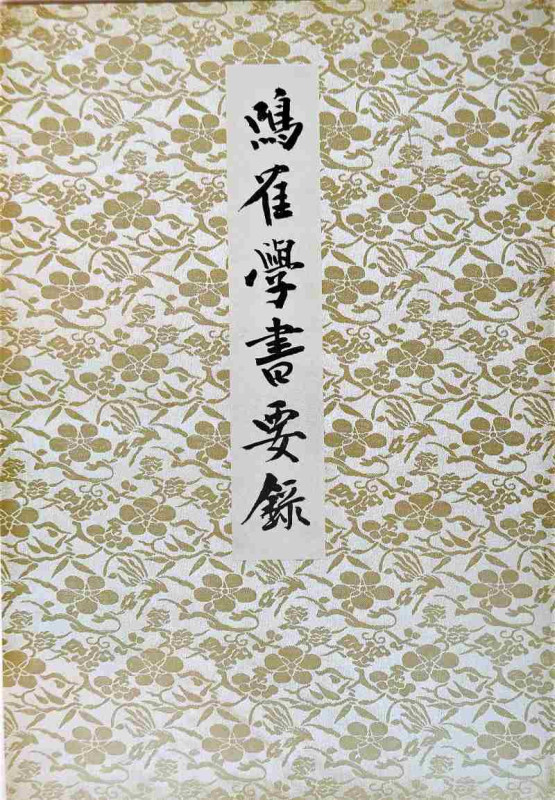 鳴雀學書要錄